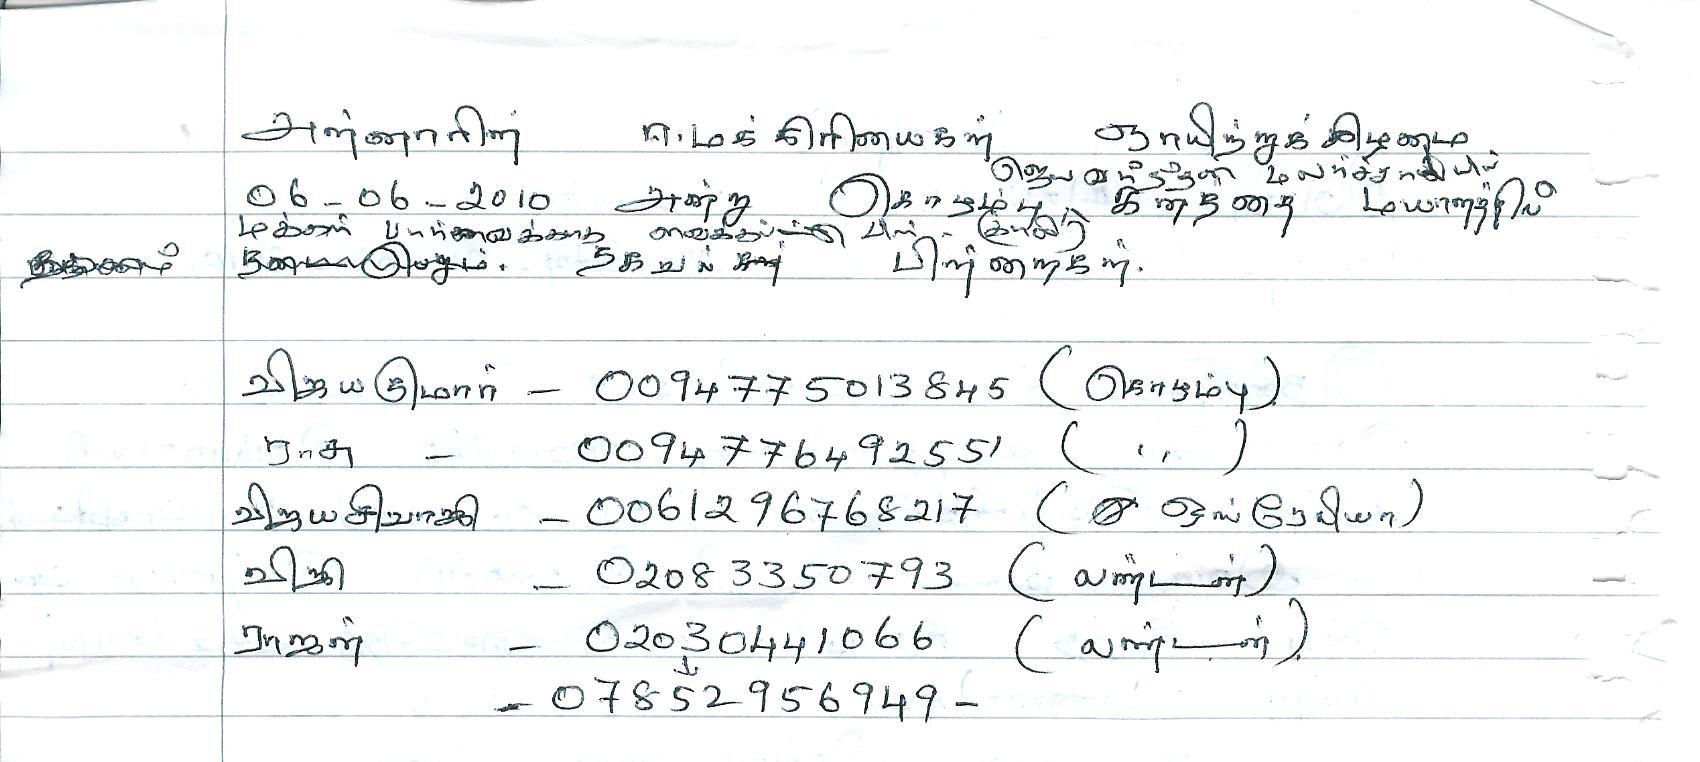 அன்னாரின் ஈ.மக் கிரியைகள் ஞாயிற்றுக் கிழமை
ஜெயரத்தின மலர்ச்சாலையில்
06-06-2010 அன்று கொழும்பு கனத்தை மயானத்தில்
மக்கள் பார்வைக்காக வைக்கப்பட்டு பின்
நடைபெறும். தகவல் பிள்ளைகள்.
விஜயகுமார் - 0094775013845 (கொழும்பு)
ராசு - 0094776492551 ( ,, )
விஜயசிவாஜி - 0061296768217 (அவுஸ்ரேலியா)
விஜி - 02083350793 (லண்டன்)
ராஜன் - 02030441066 (லண்டன்)
- 07852956949 -